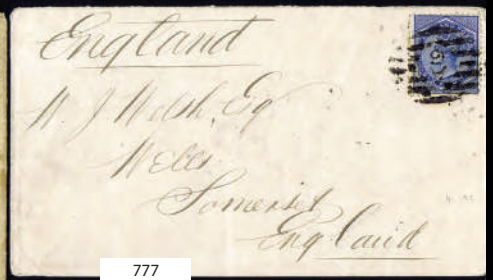 England
W. J Welsh, Esq
Wells
Somerset
England
777